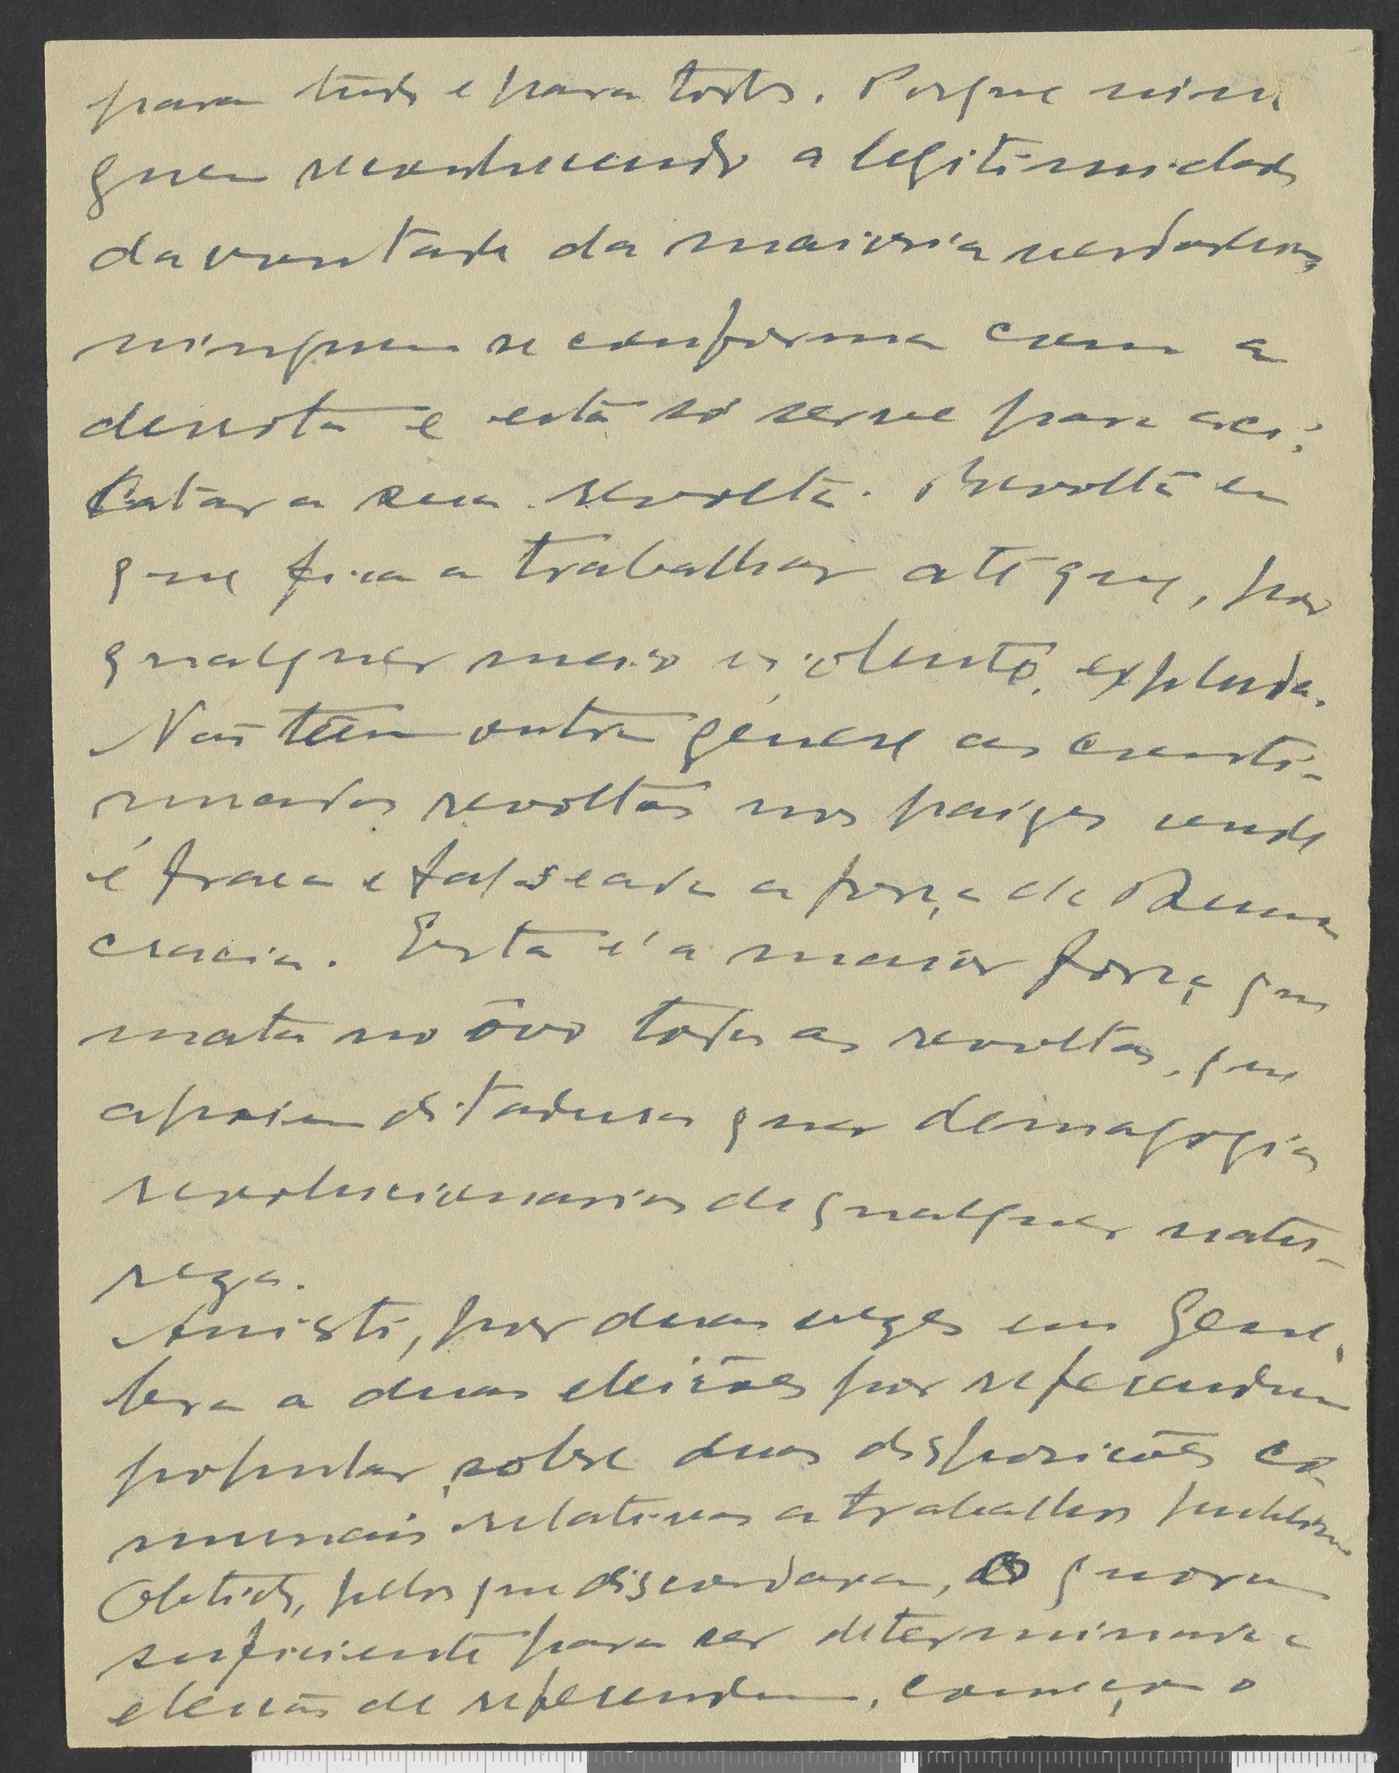 para tudo e para todos. Porque nin-
guem reconhecendo a legitimidade
da vontade da maioria verdadeira,
ninguem se conforma com a
derrota e esta só serve para aca:
tar a sua revolta. Revolta em
que fica a trabalhar até que, por
qualquer meio violento, expluda.
Não têem outra génese as conti-
nuadas revoltas nos paízes onde
é fraca e falseada a força da Demo
cracia. Esta é a maior força que
mata no ôvo todas as revoltas, que
apoiem ditaduras quer demagogias
revolucionarias de qualquer natu-
reza.
Assisti, por duas vezes em Gene-
bra a duas eleições por referendum
popular, sobre duas disposicões co-
munais relativas a trabalhos publicos
Obtido, pelos que discordavam, o quorum
suficiente para ser determinada a
eleicão de referendum, começa o